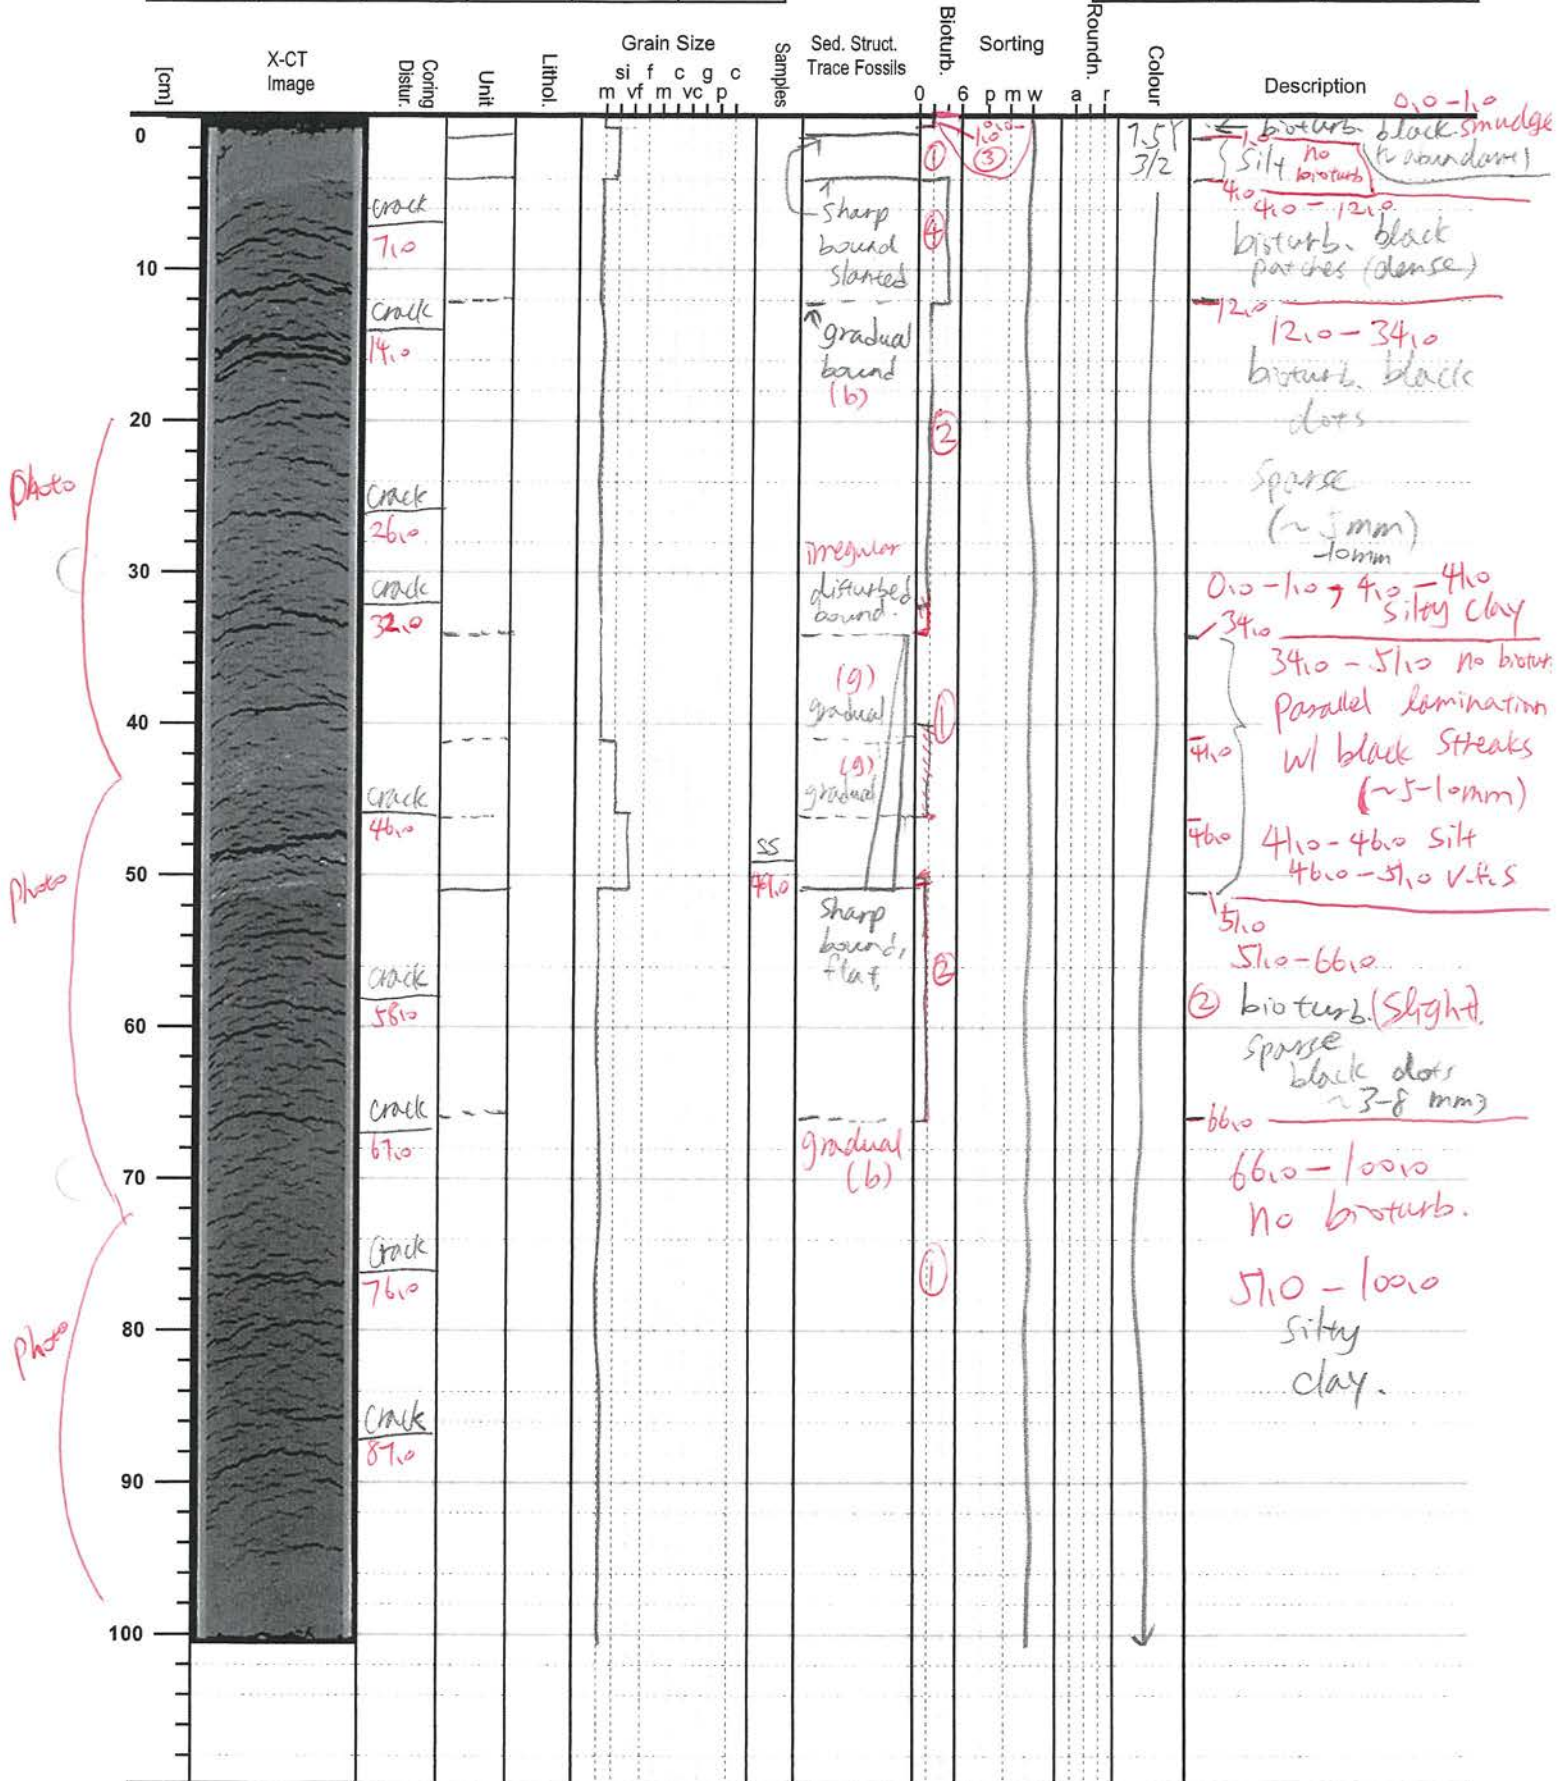 [cm]
X-CT
Image
Coring
Distur.
Unit
Lithol.
Grain Size
si f c g c
m vf m vc p
Samples
Sed. Struct.
Trace Fossils
Bioturb.
0 6
Sorting
p m w
Roundn.
a r
Colour
Description
0
10
20
30
40
50
60
70
80
90
100
photo
photo
photo
crack
7.0
crack
14.0
crack
26.0
crack
32.0
crack
46.0
crack
58.0
crack
67.0
crack
76.0
crack
87.0
SS
49.0
sharp
bound
slanted
gradual
bound
(b)
irregular
disturbed
bound.
(g)
gradual
(g)
gradual
sharp
bound,
flat,
gradual
(b)
0.0-
1.0
③
①
④
②
①
②
①
3/2
0.0-1.0
bioturb. black smudge
1.0
silt no
bioturb
4.0
4.0-12.0
bioturb. black
patches (dense)
12.0
12.0-34.0
bioturb. black
dots
sparse
(~5mm)
-10mm
0.0-1.0, 4.0-41.0
silty clay
34.0
34.0-51.0 no biotur.
parallel lamination
w/ black streaks
(~5-10mm)
41.0
46.0
41.0-46.0 silt
46.0-51.0 v.f.s
51.0
51.0-66.0
② bioturb. (slight).
sparse
black dots
~3-8 mm
66.0
66.0-100.0
no bioturb.
51.0-100.0
silty
clay.